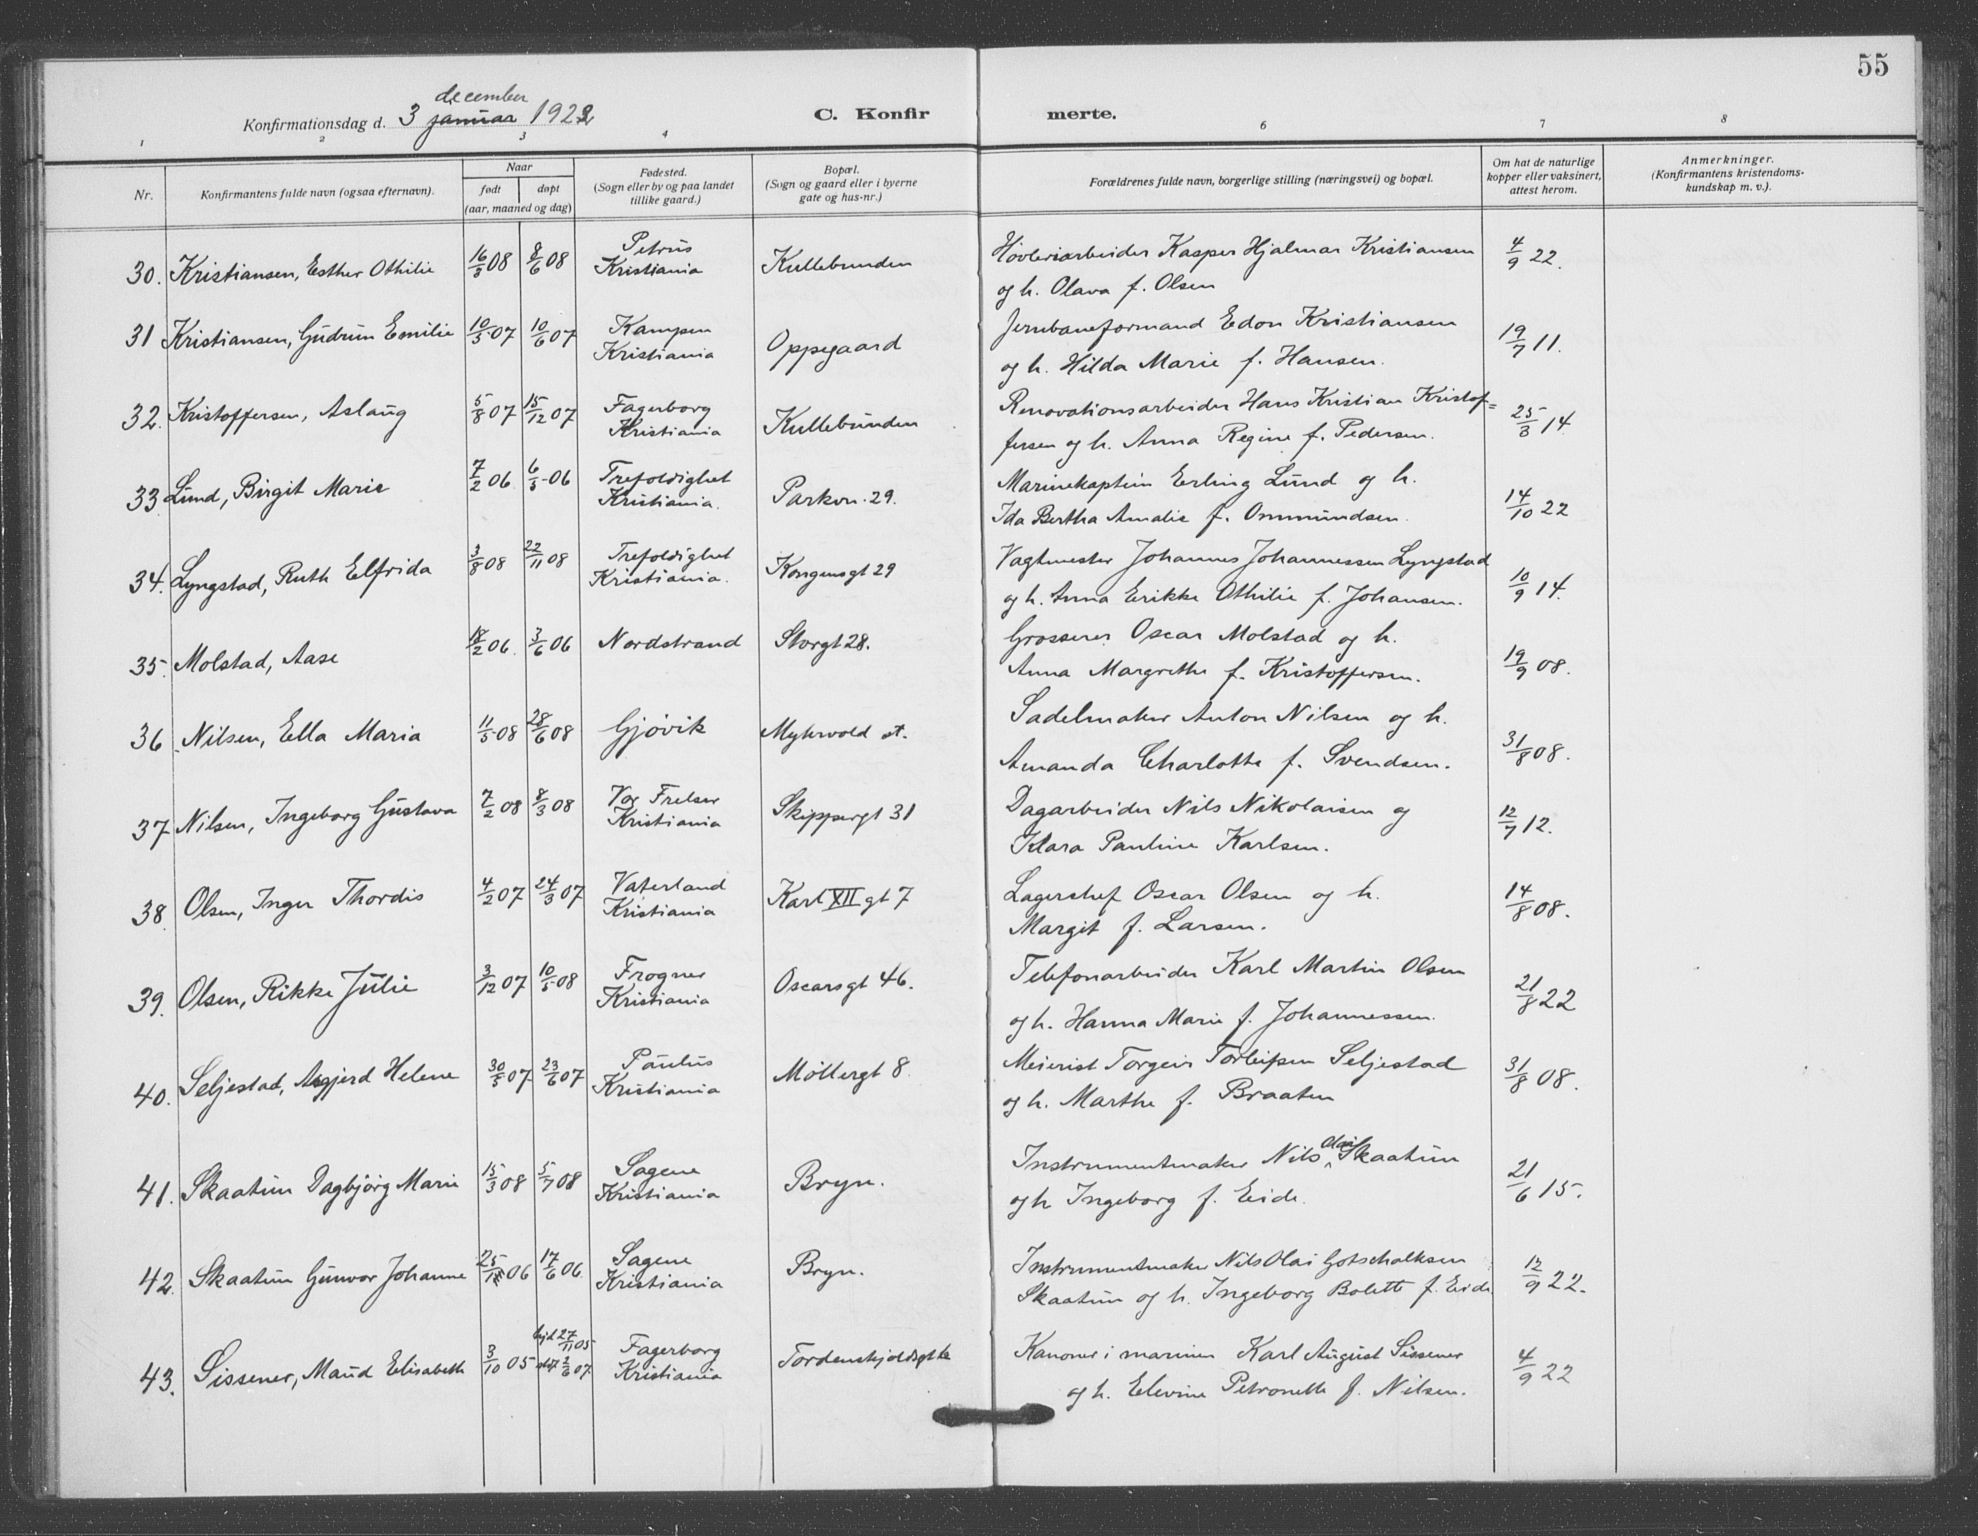 55
december
Konfirmationsdag d. 3 januar 1922
C. Konfirmerte.
1 2 3 4 6 7 8
Nr.
Konfirmantens fulde navn (ogsaa efternavn).
Naar
født døpt
(aar, maaned og dag)
Fødested.
(Sogn eller by og paa landet
tillike gaard.)
Bopæl.
(Sogn og gaard eller i byerne
gate og hus-nr.)
Forældrenes fulde navn, borgerlige stilling (næringsvei) og bopæl.
Om hat de naturlige
kopper eller vaksinert,
attest herom.
Anmerkninger.
(Konfirmantens kristendoms-
kundskap m. v.).
30. Kristiansen, Esther Othilie 16/5 08 8/6 08 Petrus Kristiania Kullebunden
Høvleriarbeider Kasper Hjalmar Kristiansen
og h. Olava f. Olsen 4/9 22.
31 Kristiansen, Gudrun Emilie 10/5 07 10/6 07 Kampen Kristiania Oppegaard
Jernbaneformand Edon Kristiansen
og h. Hilda Marie f. Hansen. 19/7 11.
32. Kristoffersen, Aslaug 5/8 07 15/12 07 Fagerborg Kristiania Kullebunden
Renovationsarbeider Hans Kristian Kristof=
fersen og h. Anna Regine f. Pedersen. 25/3 14
33 Lund, Birgit Marie 7/2 06 6/5 06 Trefoldighet Kristiania. Parkvn. 29.
Marinekaptein Erling Lund og h.
Ida Bertha Amalie f. Ommundsen. 14/10 22
34. Lyngstad, Ruth Elfrida 3/8 08 22/11 08 Trefoldighet Kristiania. Kongensgt 29
Vagtmester Johannes Johannessen Lyngstad
og h. Anna Erikke Othilie f. Johansen. 10/9 14.
35. Molstad, Aase 18/2 06. 3/6 06 Nordstrand Storgt 28.
Grosserer Oscar Molstad og h.
Anna Margrethe f. Kristoffersen. 19/9 08.
36 Nilsen, Ella Maria 11/5 08 28/6 08 Gjøvik Myhrvold st.
Sadelmaker Anton Nilsen og h.
Amanda Charlotte f. Svendsen. 31/8 08.
37 Nilsen, Ingeborg Gustava 7/2 08 8/3 08 Vor Frelser Kristiania Skippergt 31
Dagarbeider Nils Nikolaisen og
Klara Pauline Karlsen. 12/7 12.
38. Olsen, Inger Thordis 4/2 07 24/3 07 Vaterland Kristiania Karl XII gt 7
Lagerchef Oscar Olsen og h.
Margit f. Larsen. 14/8 08.
39. Olsen, Rikke Julie 3/12 07 10/5 08 Frogner Kristiania Oscarsgt 46.
Telefonarbeider Karl Martin Olsen
og h. Hanna Marie f. Johannessen. 21/8 22
40. Seljestad, Asgjerd Helene 30/5 07 23/6 07 Paulus Kristiania Møllergt 8
Meierist Torgeir Torleifsen Seljestad
og h. Marthe f. Braaten 31/8 08.
41. Skaatun Dagbjørg Marie 15/3 08 5/7 08 Sagene Kristiania Bryn.
Instrumentmaker Nils Olai Skaatun
og h Ingeborg f. Eide. 21/6 15.
42. Skaatun Gunvor Johanne 25/ 06 17/6 06 Sagene Kristiania Bryn.
Instrumentmaker Nils Olai Gotschalksen
Skaatun og h. Ingeborg Bolette f. Eide. 12/9 22.
43. Sissener, Maud Elisabeth 3/10 05 27/11 05 2/6 07 Fagerborg Kristiania Tordenskjoldsgt
Kanoner i marinen Karl August Sissener
og h. Elevine Petronelle f. Nilsen. 4/9 22